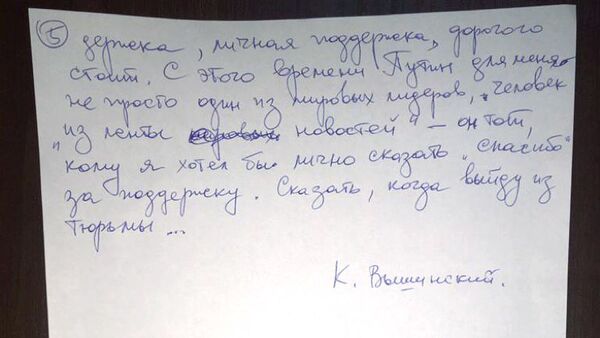 5
держка, личная поддержка, дорогого
стоит. С этого времени Путин для меня
не просто один из мировых лидеров, "человек
"из ленты новостей" – он тот,
кому я хотел бы лично сказать "спасибо"
за поддержку. Сказать, когда выйду из
тюрьмы ...
К. Вышинский.